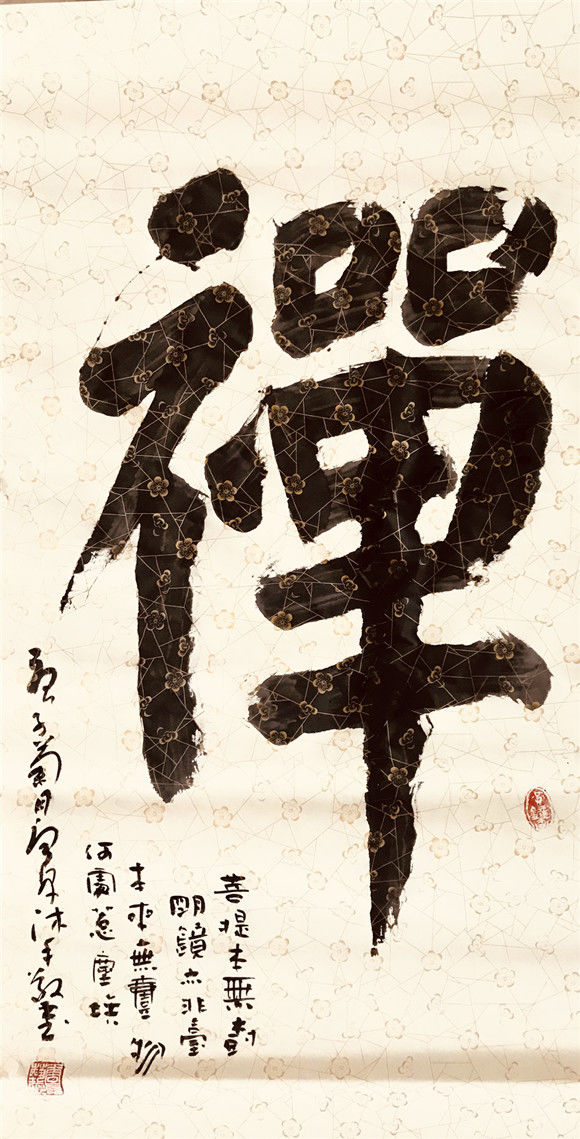 禪
菩提本無樹
明鏡亦非臺
本來無壹物
何處惹塵埃
子菊月沐手敬書